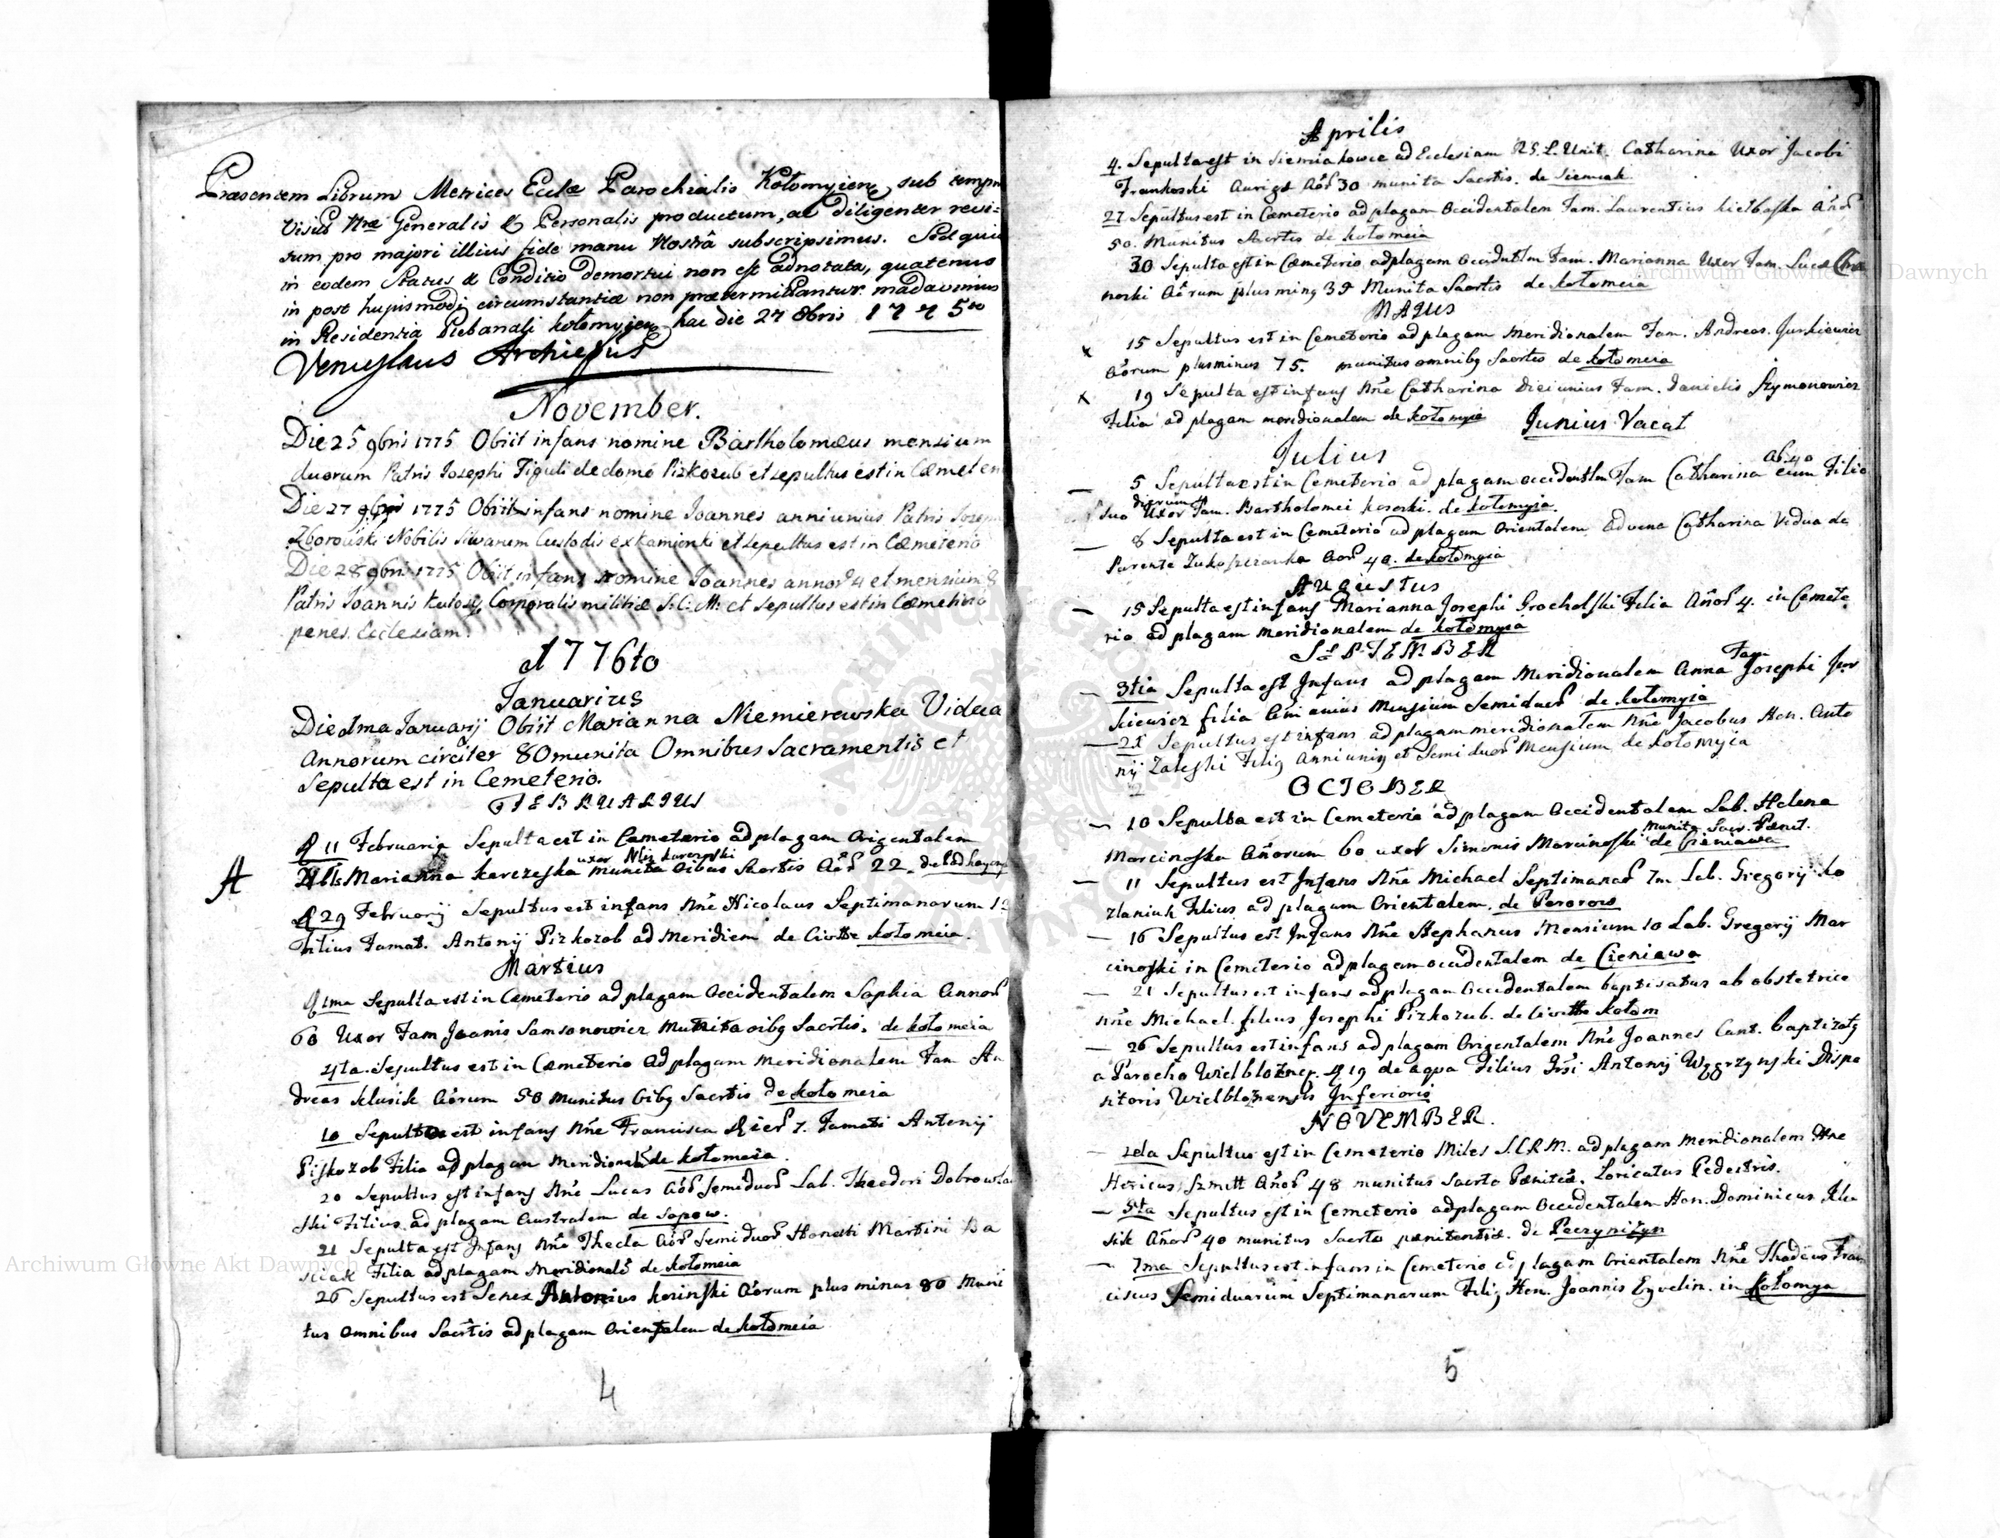 Præsentem Librum Metrices Eccłæ Parochialis Kołomyien, sub tempus
Visitis Nræ Generalis & Personalis productum, ac diligenter revi:
sum pro majori illius fide manu Nostrâ subscripsimus. Sed quia
in eodem Status & Conditio demortui non est adnotata, quatenus
in post hujusmodj circumstantiæ non prætermittantur madavimus
in Residentia Plebanali Kołomyjen, hac die 27 8bris 1775to
Venceslaus Archiepus
November.
Die 25 9bris 1775 Obiit infans nomine Bartholomæus mensium
duorum Patris Josephi Figuli de domo Pizkozub et sepultus est in Cæmeterio
Die 27 9bris 1775 Obiit infans nomine Joannes anni unius Patris Joseph
Zboroliski Nobilis Silvarum Custodis ex Kamionki et sepultus est in Cæmeterio
Die 28 9bris 1775 Obiit infans nomine Joannes annor 4 et mensium 8
Patris Joannis Corporalis militiæ S. C. M. et sepultus est in Cæmeterio
penes Ecclesiam
1776to
Januarius
Die 1ma Januarij Obiit Marianna Niemierawska Vidua
Annorum circiter 80 munita Omnibus Sacramentis et
Sepulta est in Cemeterio.
FEBRUARIUS
11 Februarij Sepulta est in Cæmeterio ad plagam Origentalem
uxor Nlis Karczeski
A Marianna Karczeska munita oibus Sacrtis Aór 22
29 Februarij Sepultus est infans Nñe Nicolaus Septimanarum 1
Filius Famat. Antonij Pizkozob ad Meridiem de Civitte Kołomeia.
Martius
1ma Sepulta est in Cæmeterio ad plagam Occidentalem Sophia Annor
60 Uxor Fam Joanis Samsonowicz Munita oibg Sacrtis. de Kołomeia
4ta. Sepultus est in Cæmeterio ad plagam meridionalem Fam An
dreas Klusik Aórum 50 munitus Oibg Sacrtis de Kołomeia
10 Sepulta est infans Nñe Francisca Dier 7. Famati Antonij
Piskozob Filia ad plagam Meridional de Kołomeia.
20 Sepultus est infans Nñe Lucas Aór semiduor Lab. Theodori Dobrowla
ski Filius ad plagam Australem de Sopow.
21 Sepulta est Infans Nñe Thecla Aór semiduor Honesti Martini Ba
siak Filia ad plagam Meridionale de Kołomeia
26 Sepultus est Senex Antonius Korinski Aórum plus minus 80 Muni
tus Omnibus Sacrtis ad plagam Orientalem de Kołomeia
4
Aprilis
4. Sepulta est in Siemiakowce ad Eclesiam R.G.L. Unit. Catharina Uxor Jacobi
Frankoski Aurigæ Aór 30 munita Sacrtis. de Siemiak
27 Sepultus est in Cæmeterio ad plagam Occidentalem Fam. Laurentius Kiełbaska Añor
50. Munitus Sacrtis de Kołomeia
30 Sepulta est in Cæmeterio ad plagam Occidentlm Fam. Marianna Uxor Fam. Lucæ
noski Aórum plus ming 35 Munita Sacrtis de Kołomeia
MAJUS
x 15 Sepultus est in Cemeterio ad plagam Meridionalem Fam. Andreas Jurkiewicz
Aórum plus minus 75. munitus omnibg Sacrtis de Kołomeia
x 19 Sepulta est infans Nñe Catharina Diei unius Fam. Danielis Szymonowicz
Filia ad plagam meridionalem de Kołomyia Junius Vacat
Julius
Ar. 40
5 Sepulta est in Cemeterio ad plagam occidentlm Fam Catharina cum Filio
dierum
Suo Uxor Fam. Bartholomei Kososki. de Kołomyia.
8 Sepulta est in Cemeterio ad plagam Orientalem advena Catharina Vidua de
Parente Aor 40. de Kołomyia
AUGUSTUS
15 Sepulta est infans Marianna Josephi Grocholski Filia Añor 4. in Cemete
rio ad plagam Meridionalem de Kołomyia
SEPTEMBER
Fam
3tia Sepulta est Infans ad plagam Meridionalem Anna Josephi Jur
kiewicz filia Ani unius Mensium Semiduor de Kołomyia
21 Sepultus est infans ad plagam meridionalem Nñe Jacobus Hon. Anto
nij Zaleski Filig Anni unig et Semiduor Mensium de Kołomyia
OCTOBER
10 Sepulta est in Cemeterio ad plagam Occidentalem Lab. Helena
Munita Sacr. Pænit.
Marcinoska Añorum 60 uxor Simonis Marcinoski de Cieniawa
11 Sepultus est Infans Nñe Michael Septimanar 7m Lab. Gregorij Ko
zlaniuk Filius ad plagam Orientalem. de Pererow
16 Sepultus est Infans Nñe Stephanus Mensium 10 Lab. Gregorij Mar
cinoski in Cemeterio ad plagam occidentalem de Cieniawa
21 Sepultus est infans ad plagam Occidentalem baptisatus ab obstetrice
Nñe Michael. filius Josephi Pizkozub. de Civitte Kołom
26 Sepultus est infans ad plagam Origentalem Nñe Joannes Cant. baptizatg
a Parocho de aqua Filius Grsi Antonij Węgrzynski Dispo
sitoris Inferioris
NOVEMBER.
2da Sepultus est in Cemeterio Miles S.C.R.M. ad plagam Meridionalem Nñe
Henricus Szmitt Añor 48 munitus Sacrto Pænitæ. Loricatus Pedestris.
5ta Sepultus est in Cemeterio ad plagam Occidentalem Hon. Dominicus
sik Añor 40 munitus Sacrto pænitentiæ. de Peczyniżyn
7ma Sepultus est infans in Cemeterio ad plagam Orientalem Nñe Thadæus Fran
ciscus Semiduarum Septimanarum Filig Hon. Joannis Eyvelin. in Kołomya
5
Archiwum Główne Akt Dawnych
Archiwum Główne Akt Dawnych